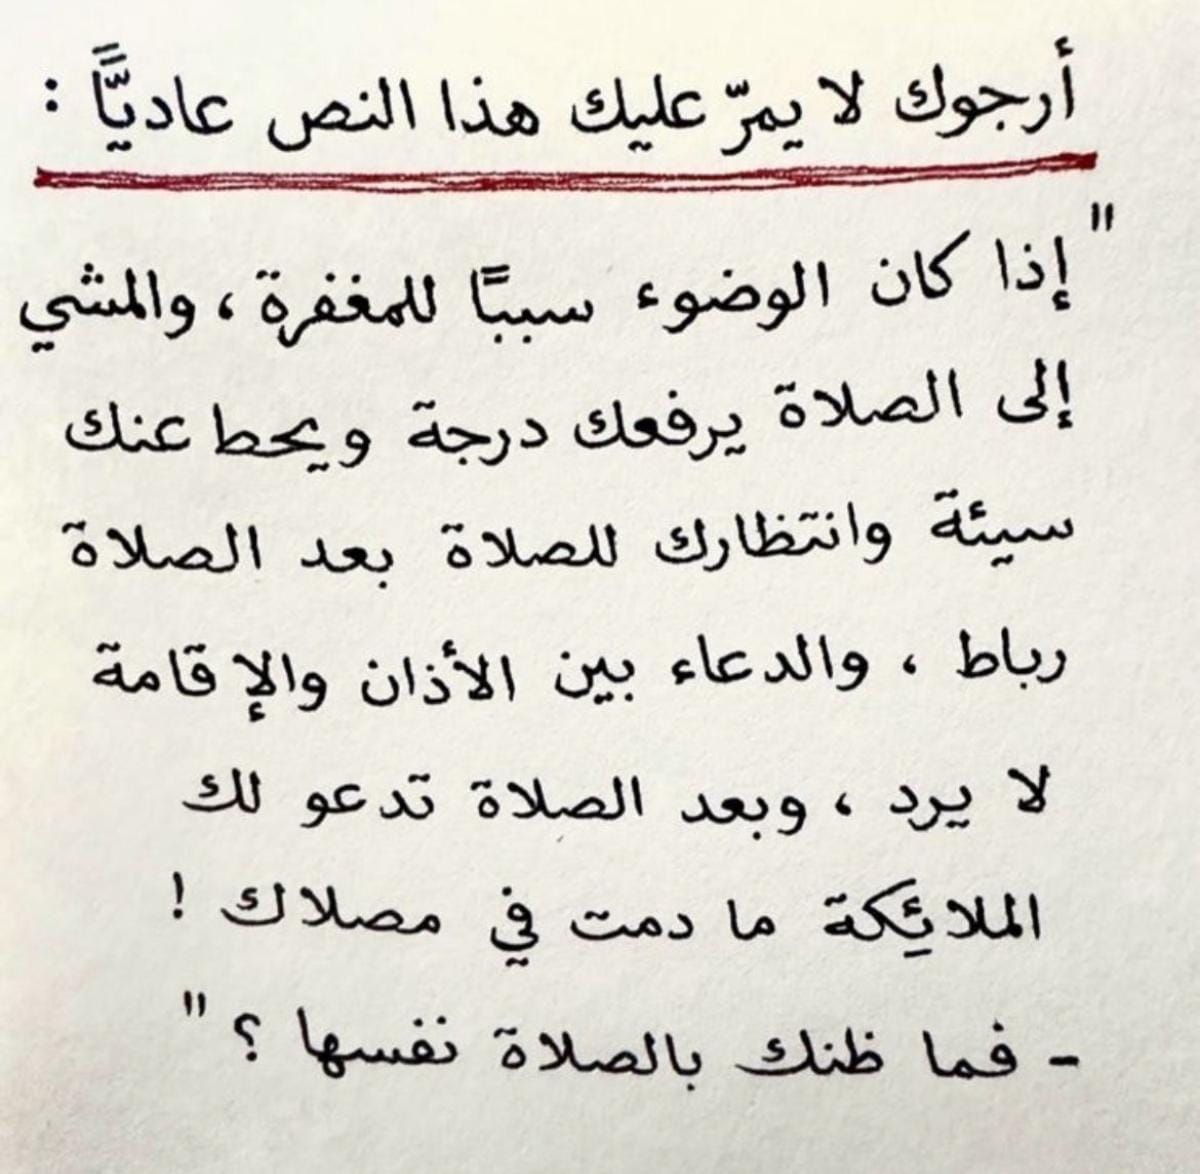 أرجوك لا يمرّ عليك هذا النص عاديًّا :
" إذا كان الوضوء سببًا للمغفرة ، والمشي
إلى الصلاة يرفعك درجة ويحط عنك
سيئة وانتظارك للصلاة بعد الصلاة
رباط ، والدعاء بين الأذان والإقامة
لا يرد ، وبعد الصلاة تدعو لك
الملائِكة ما دمت في مصلاك !
- فما ظنك بالصلاة نفسها ؟ "